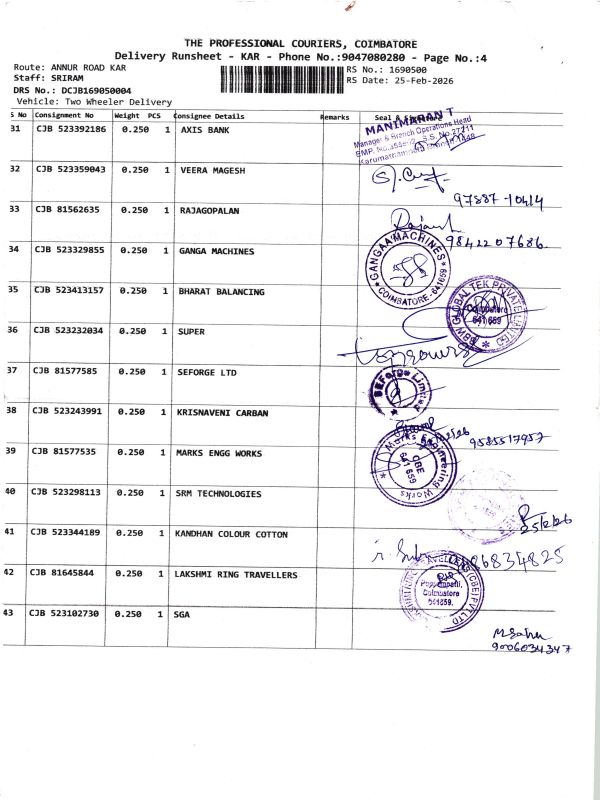 THE PROFESSIONAL COURIERS, COIMBATORE
Delivery Runsheet - KAR - Phone No.:9047080280 - Page No.:4
Route: ANNUR ROAD KAR
RS No.: 1690500
Staff: SRIRAM
RS Date: 25-Feb-2026
DRS No.: DCJB169050004
Vehicle: Two Wheeler Delivery
S No Consignment No Weight PCS Consignee Details Remarks Seal &
31 CJB 523392186 0.250 1 AXIS BANK
MANIMARAN T
Manager & Branch Operations Head
32 CJB 523359043 0.250 1 VEERA MAGESH
97887-10414
33 CJB 81562635 0.250 1 RAJAGOPALAN
9842207686
34 CJB 523329855 0.250 1 GANGA MACHINES
GANGAA MACHINES
COIMBATORE - 641659
35 CJB 523413157 0.250 1 BHARAT BALANCING
GLOBAL TEK PRIVATE LIMITED
Coimbatore
641 659
36 CJB 523232034 0.250 1 SUPER
37 CJB 81577585 0.250 1 SEFORGE LTD
SEForge Limited
38 CJB 523243991 0.250 1 KRISNAVENI CARBAN
9585517957
39 CJB 81577535 0.250 1 MARKS ENGG WORKS
Marks Engineering Works
CBE
641 659
40 CJB 523298113 0.250 1 SRM TECHNOLOGIES
25/2/26
41 CJB 523344189 0.250 1 KANDHAN COLOUR COTTON
42 CJB 81645844 0.250 1 LAKSHMI RING TRAVELLERS
Coimbatore
641659.
43 CJB 523102730 0.250 1 SGA
9006034347